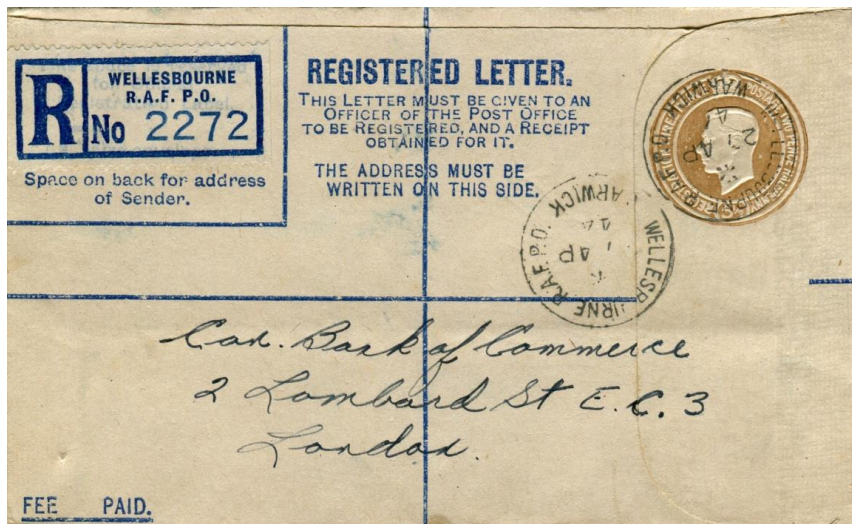 R
WELLESBOURNE
R.A.F. P.O.
No 2272
Space on back for address
of Sender.
REGISTERED LETTER.
THIS LETTER MUST BE GIVEN TO AN
OFFICER OF THE POST OFFICE
TO BE REGISTERED, AND A RECEIPT
OBTAINED FOR IT.
THE ADDRESS MUST BE
WRITTEN ON THIS SIDE.
WELLESBOURNE R.A.F. P.O. WARWICK
AP
44
WELLESBOURNE R.A.F. P.O. WARWICK
AP
Can. Bank of Commerce
2 Lombard St E.C. 3
London.
FEE PAID.